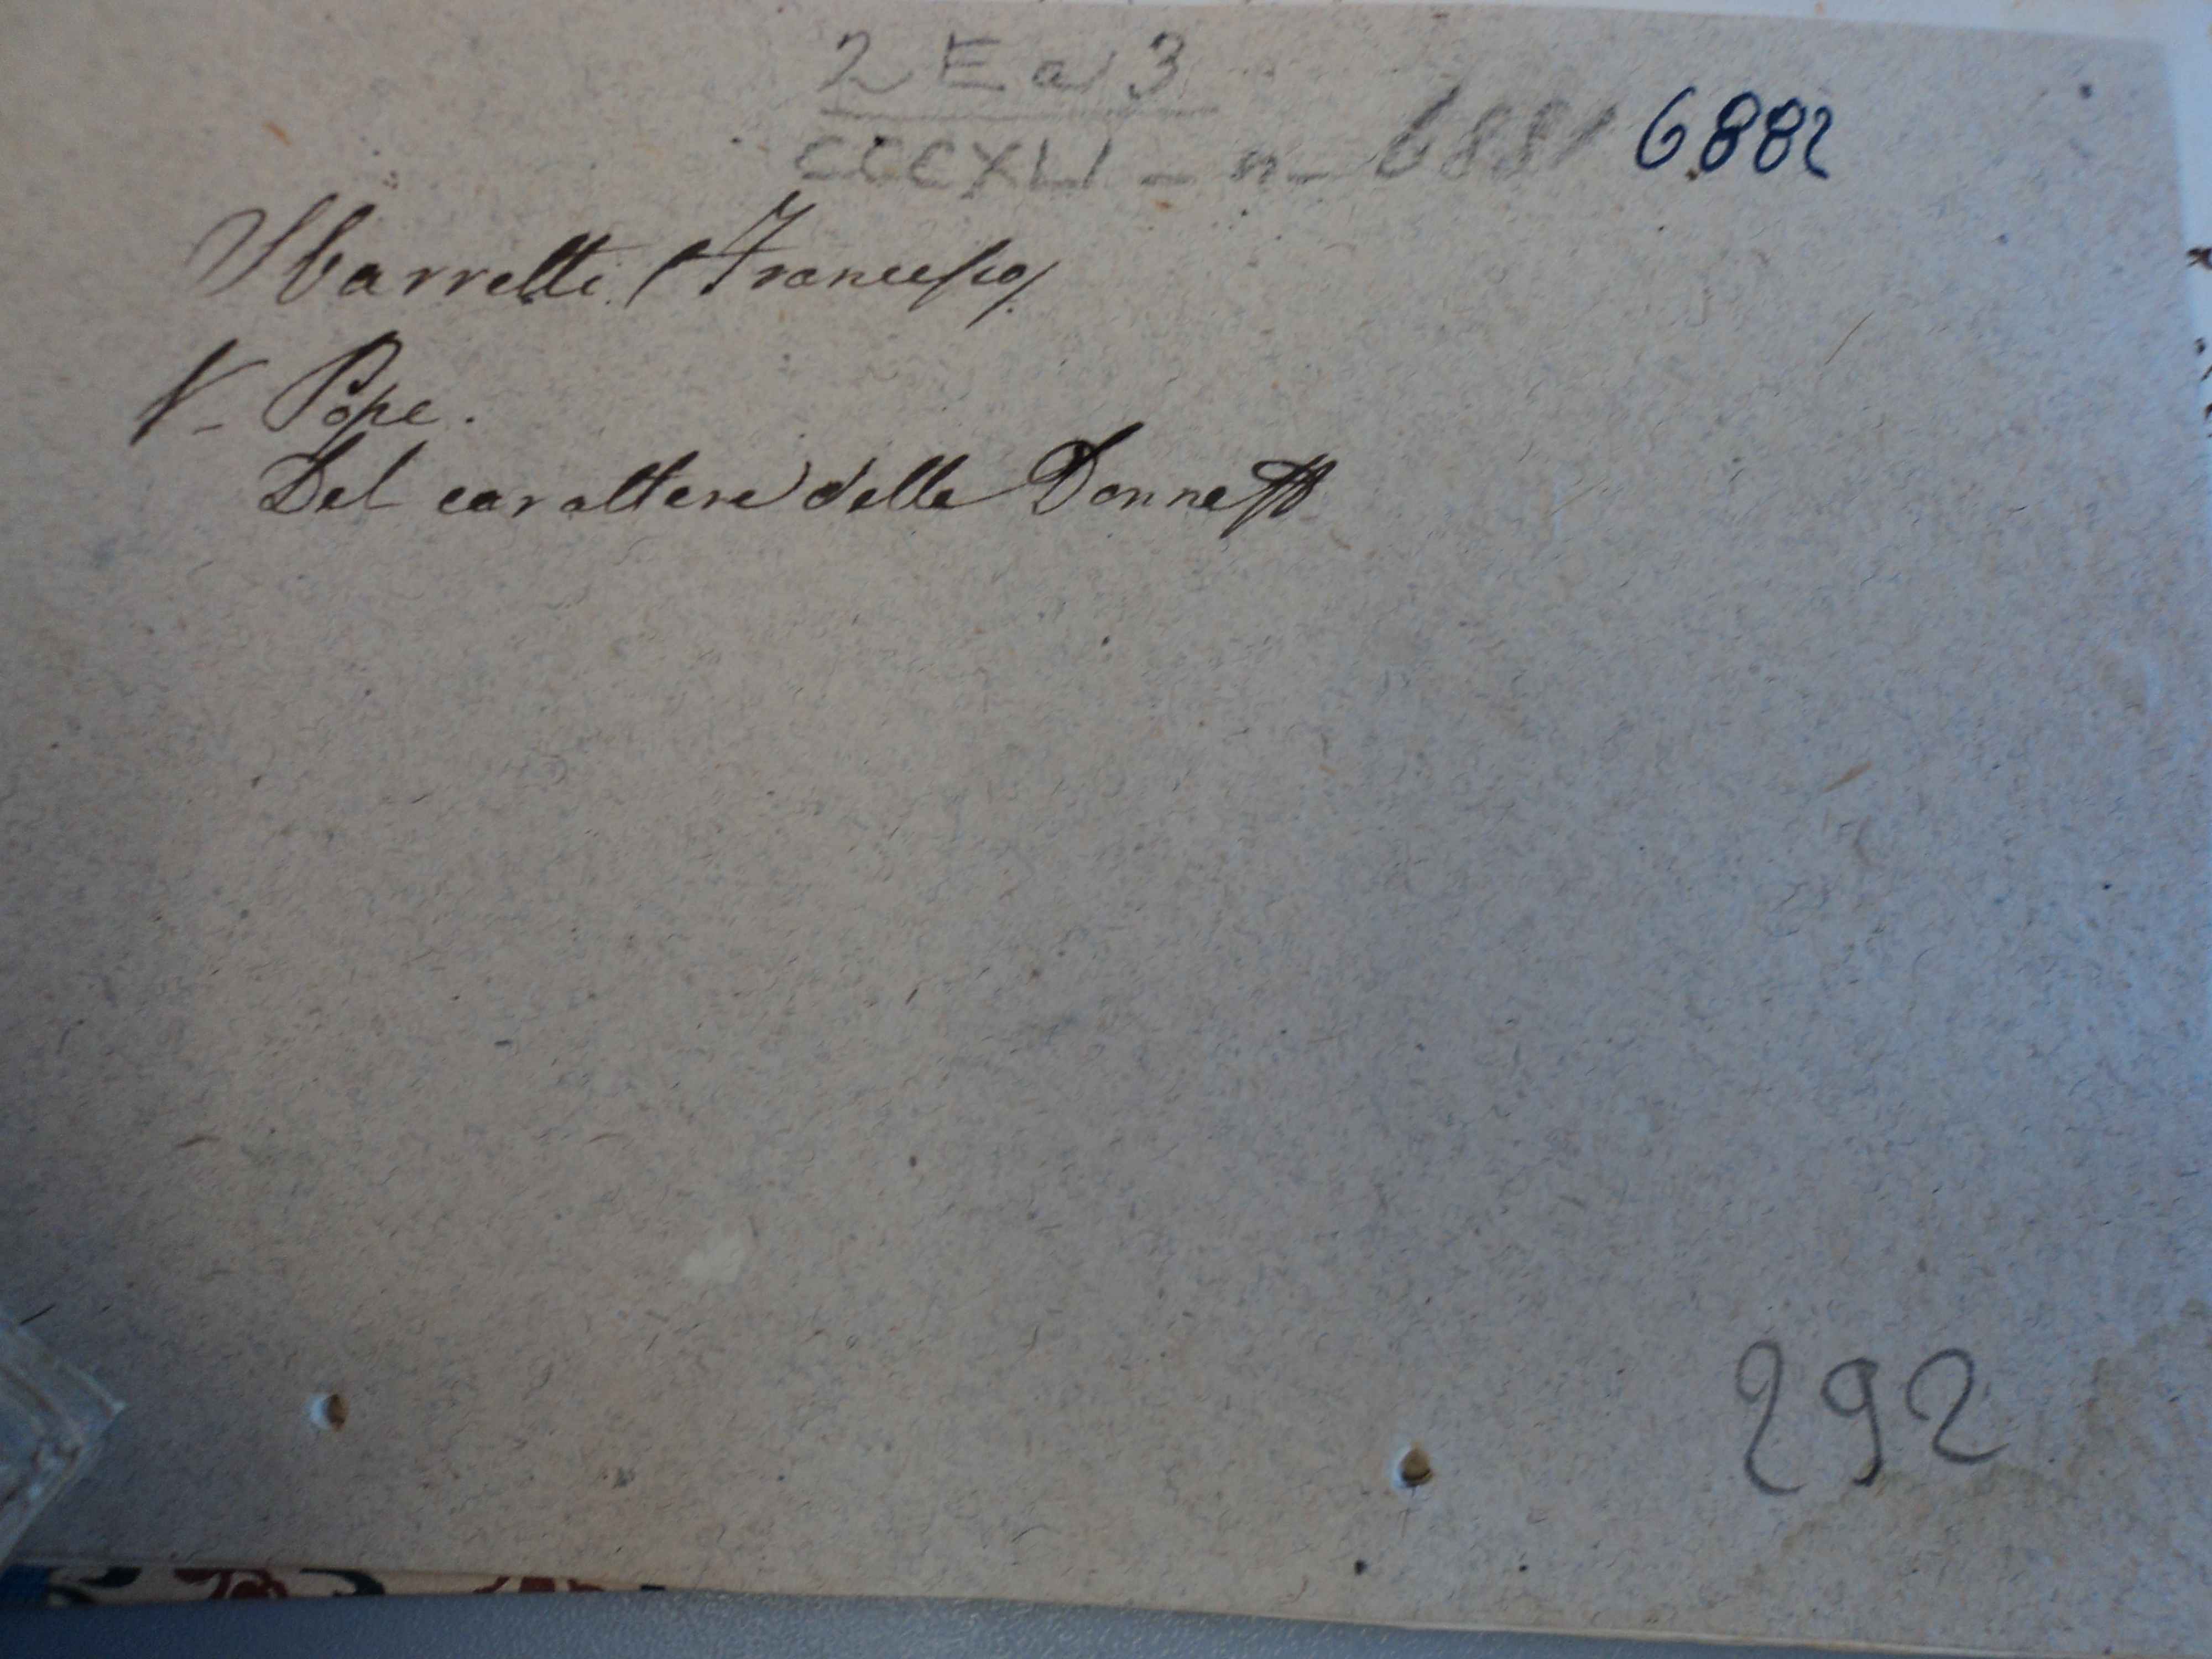 2 E a 3
CCCXLI - n - 6881 6882
Sbarretti (Francesco).
V- Pope.
Del carattere delle Donne
292